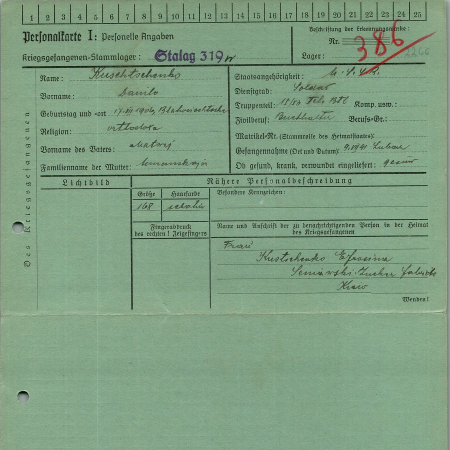 1 2 3 4 5 6 7 8 9 10 11 12 13 14 15 16 17 18 19 20 21 22 23 24 25
Personalkarte I: Personelle Angaben
Beschriftung der Erkennungsmarke:
Nr. 386
Kriegsgefangenen-Stammlager: Stalag 319
Lager:
Des Kriegsgefangenen
Name: Kuschtschenko
Vorname: Danilo
Geburtstag und -ort
Religion: orthodox
Vorname des Vaters:
Familienname der Mutter:
Staatsangehörigkeit:
Dienstgrad: Soldat
Truppenteil: Komp. usw.:
Zivilberuf: Buchhalter Berufs-Gr.:
Matrikel-Nr. (Stammrolle des Heimatstaates)
Gefangennahme (Ort und Datum): 9.1941
Ob gesund, krank, verwundet eingeliefert: gesund
Lichtbild
Nähere Personalbeschreibung
Größe Haarfarbe
168
Besondere Kennzeichen:
Fingerabdruck
des rechten! Zeigefingers
Name und Anschrift der zu benachrichtigenden Person in der Heimat
des Kriegsgefangenen
Frau
Kustschenko Efrosina
Kiew
Wenden!